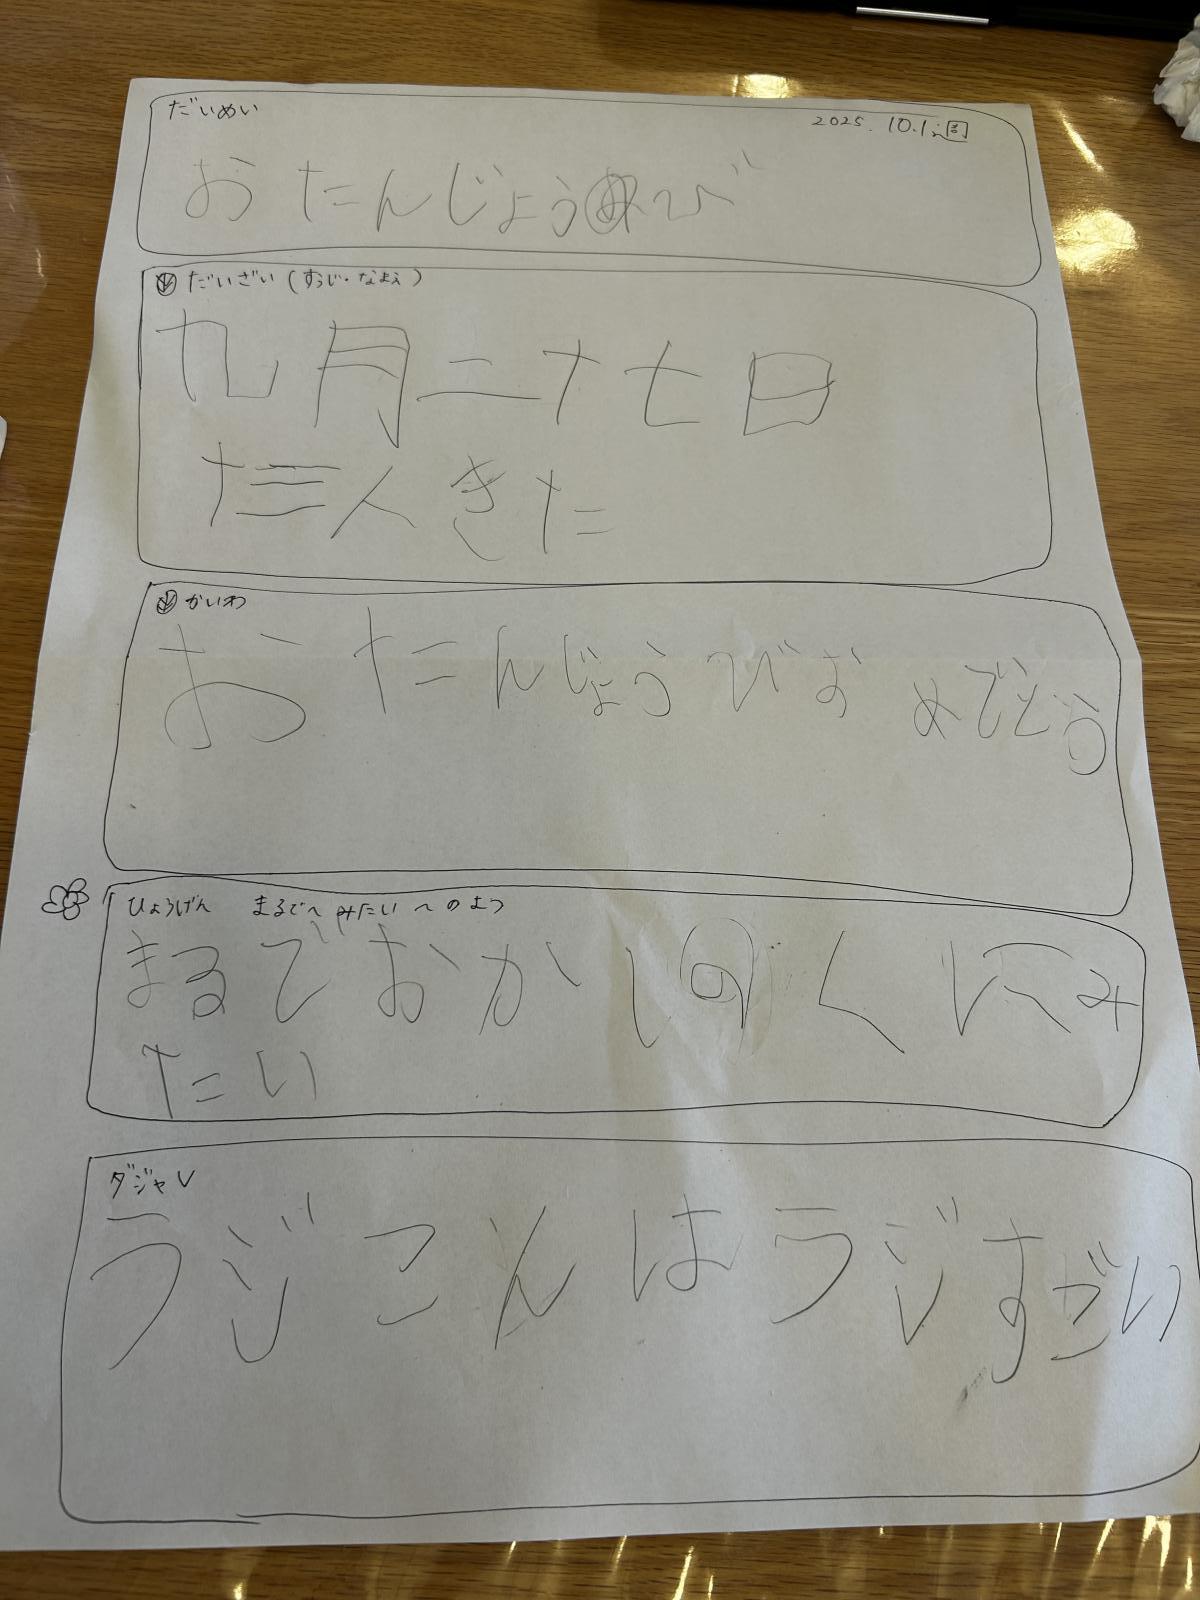 だいめい
2025. 10.1.週
おたんじょうび
だいざい(すうじ・なまえ)
九月二十七日
十三人きた
かいわ
おたんじょうびおめでとう
ひょうげん まるで〜みたい 〜のよう
まるでおかしのくにへみ
たい
ダジャレ
ラジこんはラジすごい